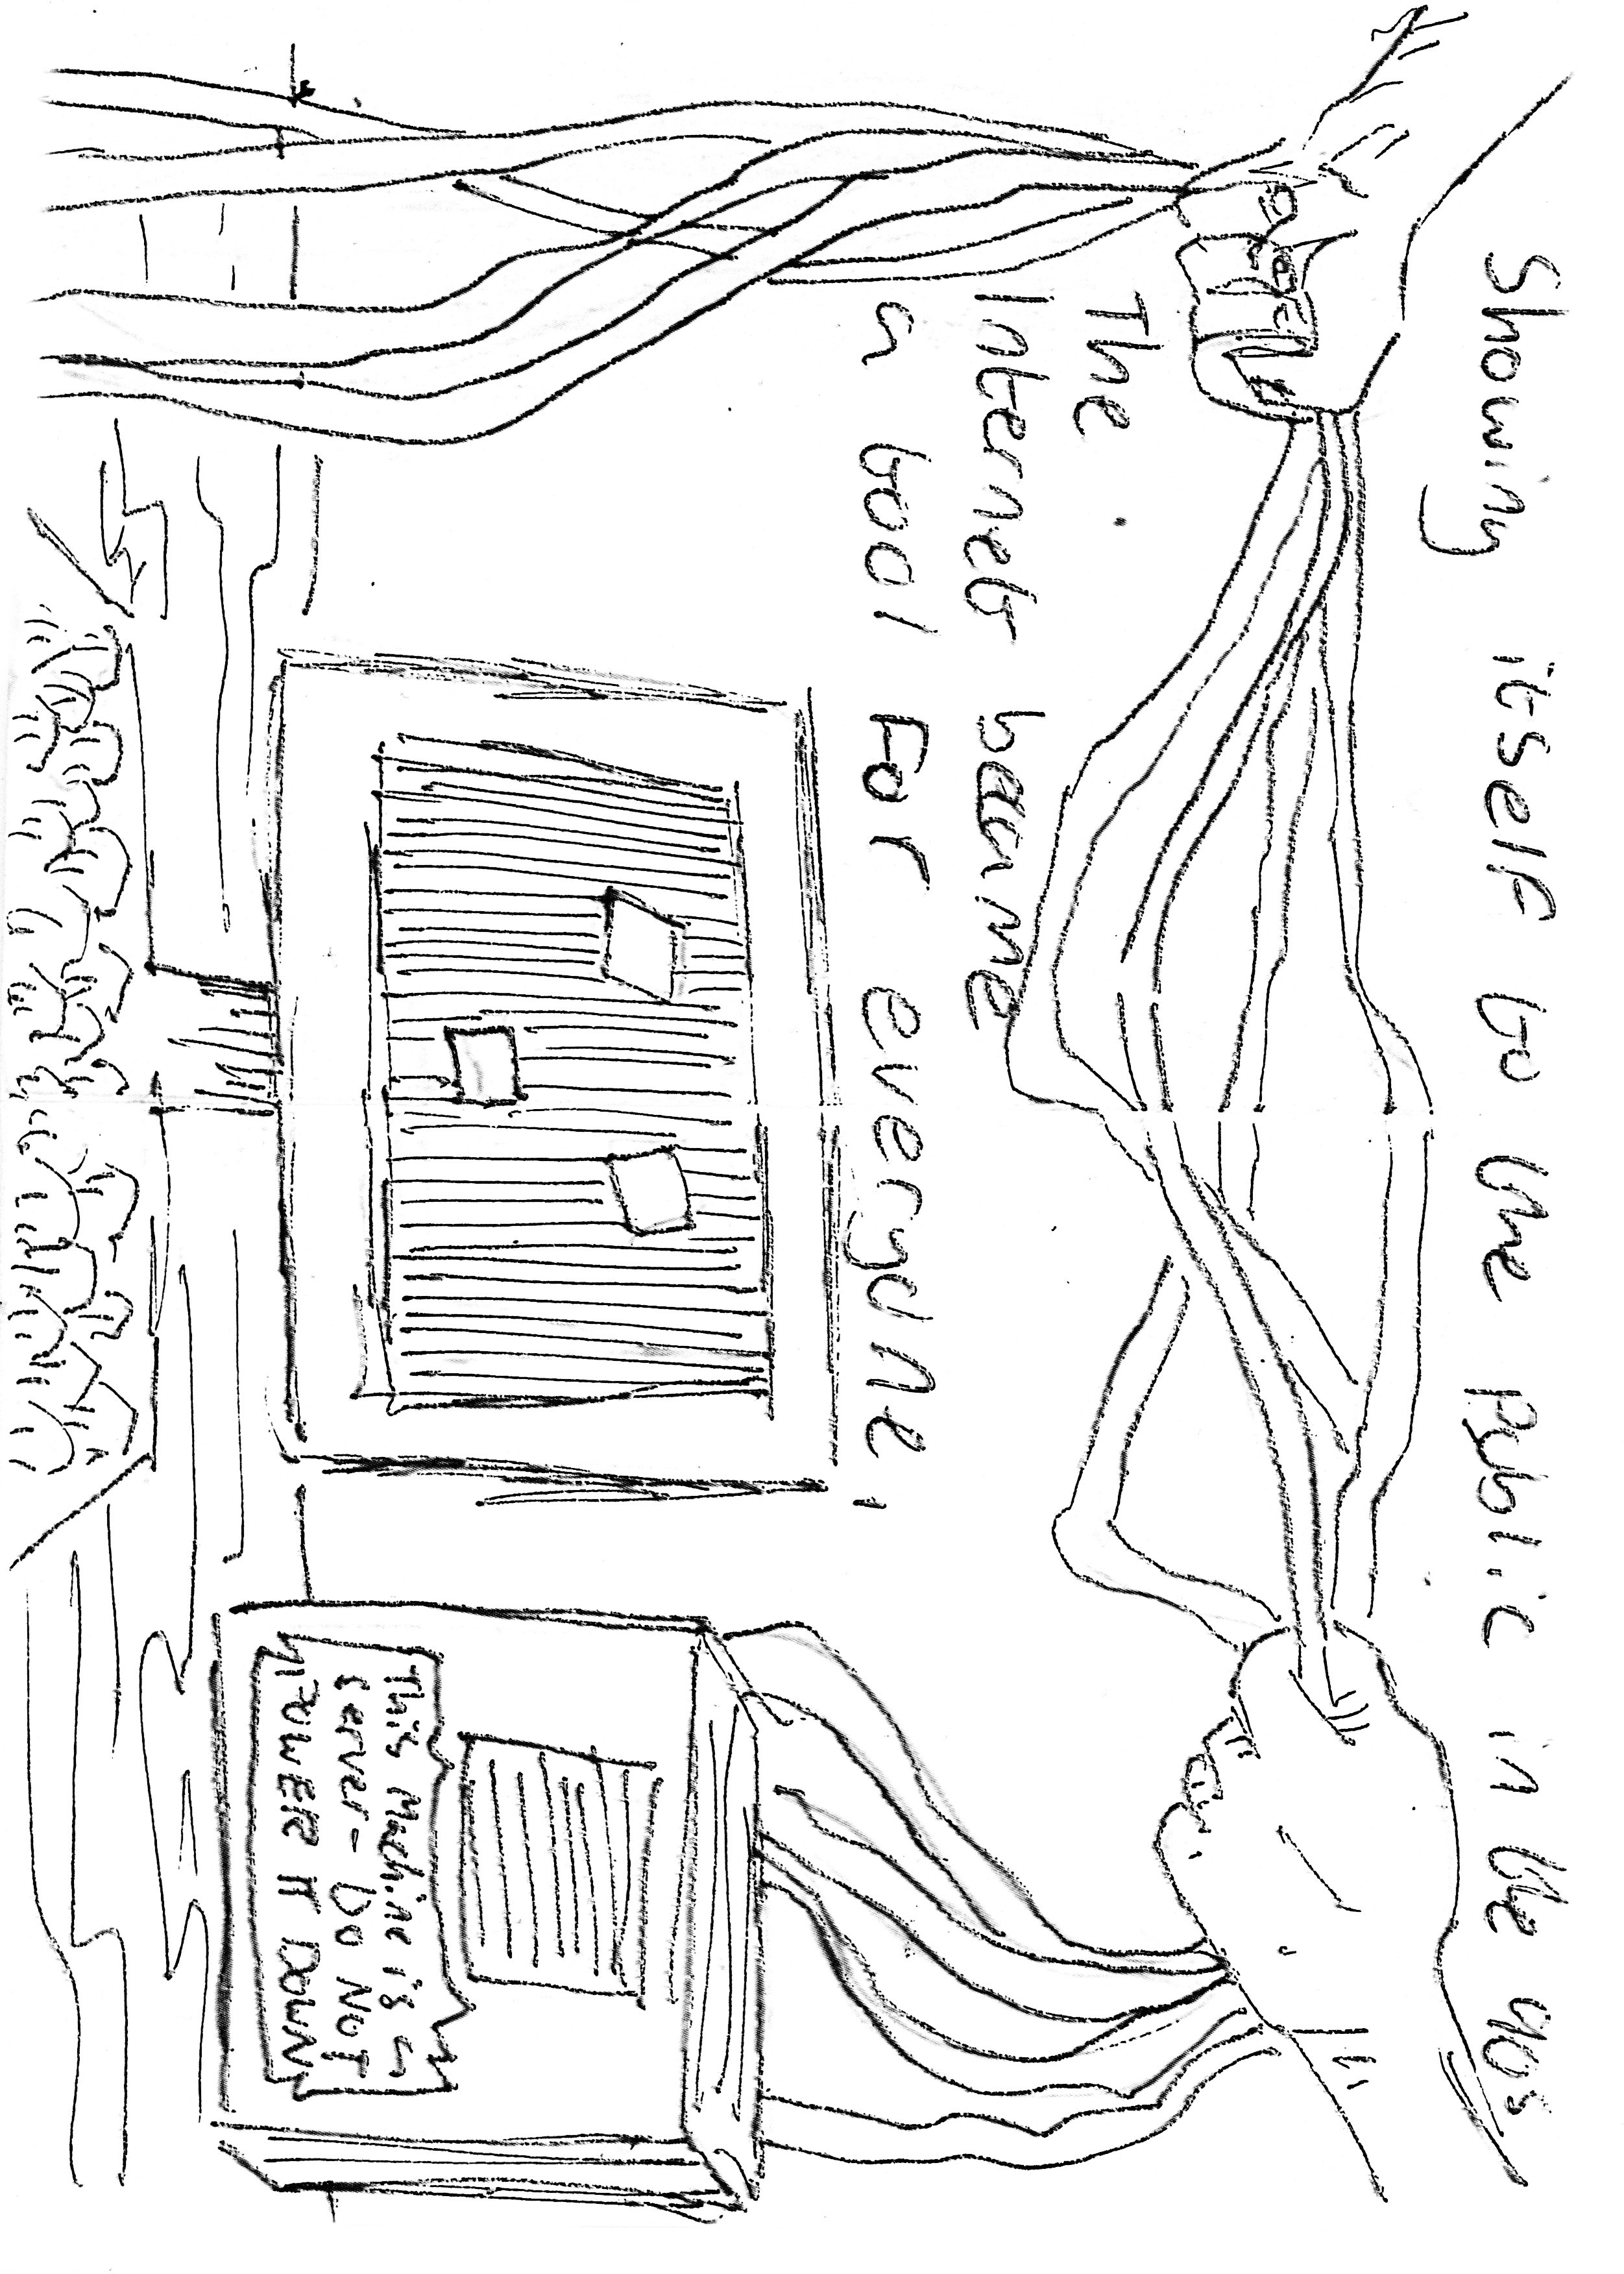 Showing itself to the Public in the 90s
The
Internet became
a tool For everyone,
This Machine is a
server - Do Not
POWER IT DOWN